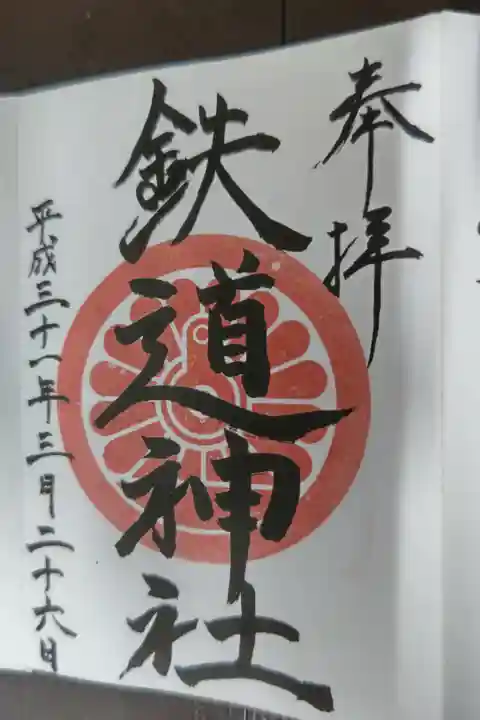 奉拝
鉄道神社
平成三十一年三月二十六日